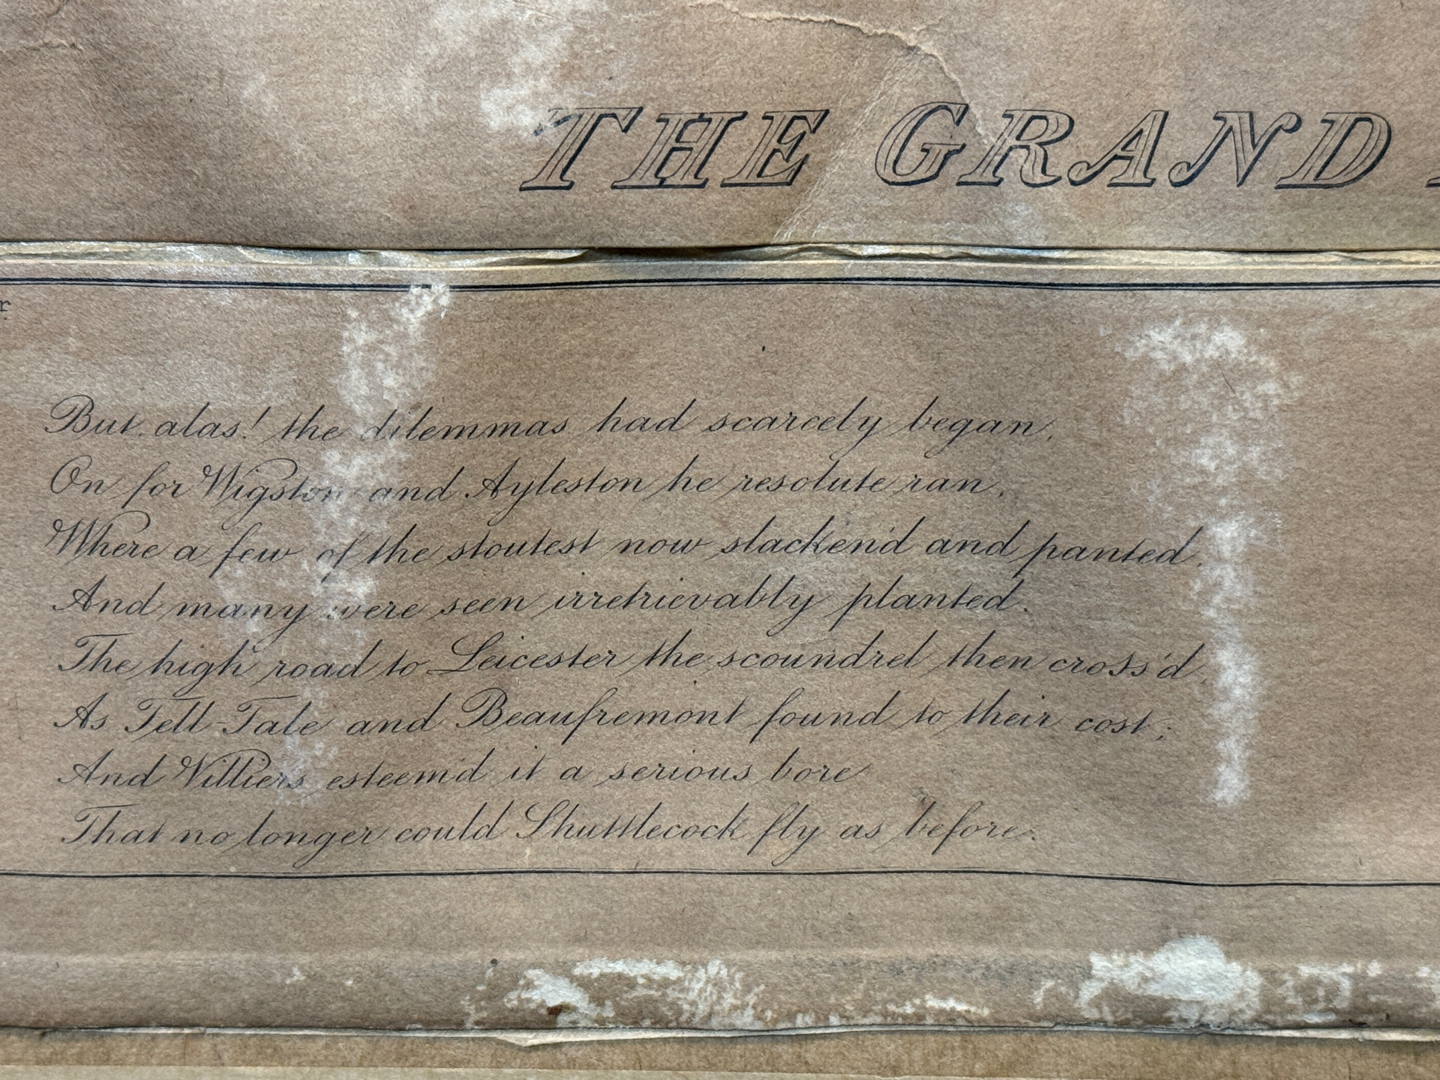 THE GRAND
But alas! the dilemmas had scarcely began,
On for Wigston and Ayleston he resolute ran,
Where a few of the stoutest now slacken'd and panted,
And many were seen irretrievably planted.
The high road to Leicester the scoundrel then cross'd,
As Tell-Tale and Beaufremont found to their cost;
And Villiers esteem'd it a serious bore
That no longer could Shuttlecock fly as before.